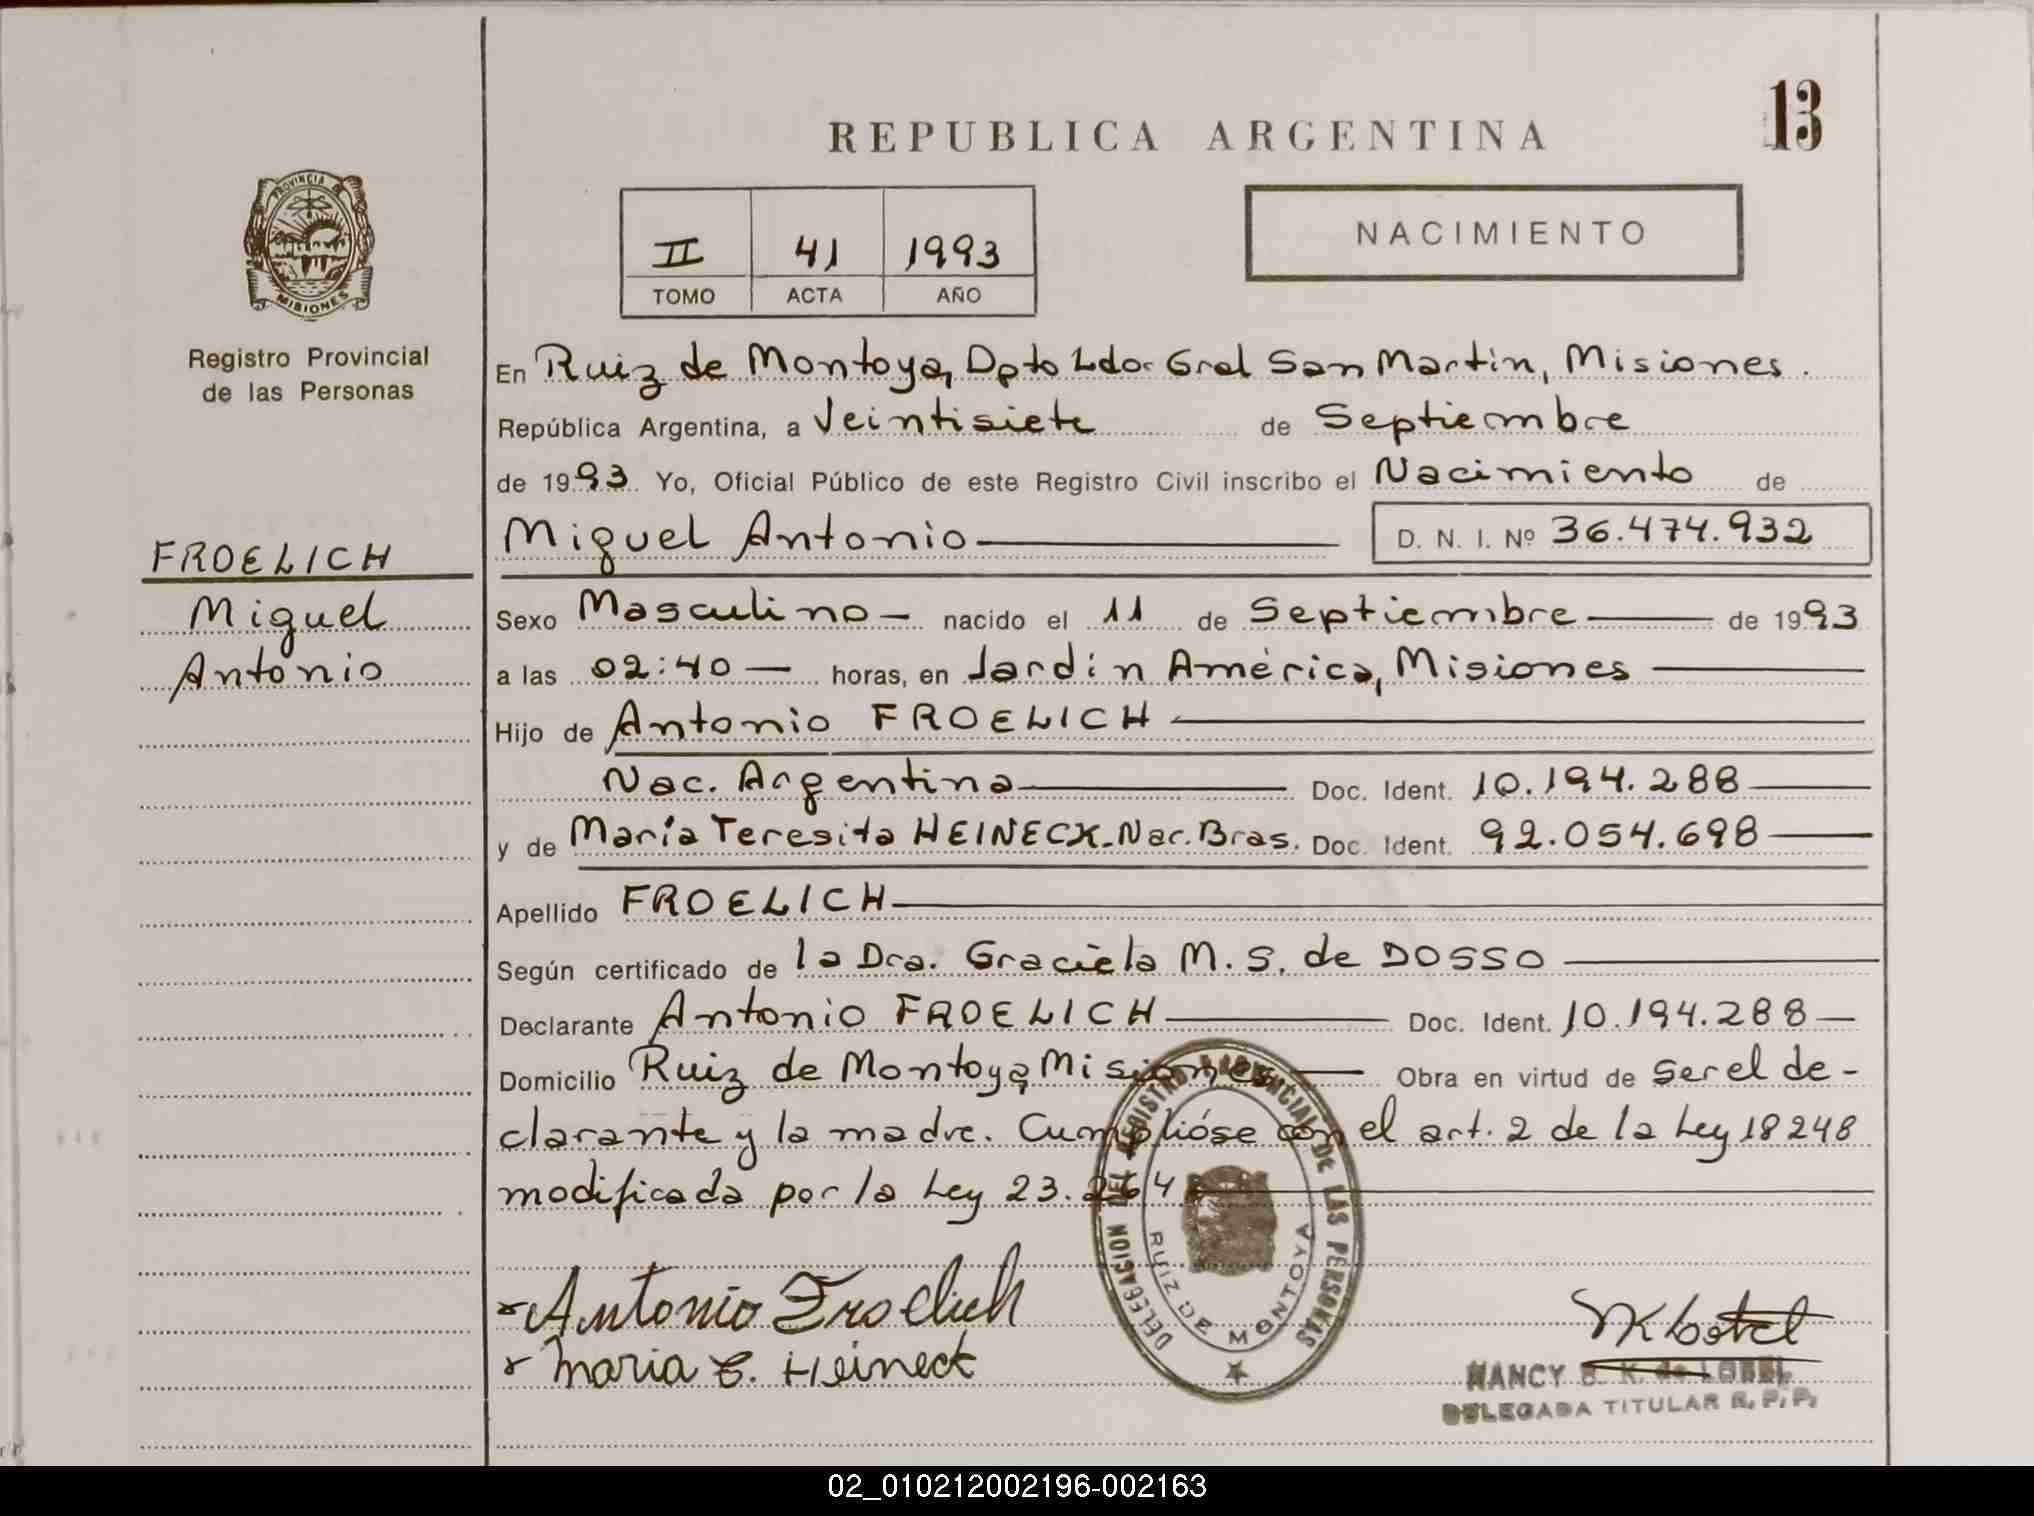 13
REPUBLICA ARGENTINA
PROVINCIA DE
MISIONES
Registro Provincial
de las Personas
II 41 1993
TOMO ACTA AÑO
NACIMIENTO
FROELICH
Miguel
Antonio
En Ruiz de Montoya, Dpto Ldor Gral San Martín, Misiones.
República Argentina, a Veintisiete de Septiembre
de 1993. Yo, Oficial Público de este Registro Civil inscribo el Nacimiento de
Miguel Antonio D. N. I. Nº 36.474.932
Sexo Masculino — nacido el 11 de Septiembre — de 1993
a las 02:40 — horas, en Jardín América, Misiones —
Hijo de Antonio FROELICH —
Nac. Argentina — Doc. Ident. 10.194.288 —
y de María Teresita HEINECK-Nac. Bras. Doc. Ident. 92.054.698 —
Apellido FROELICH —
Según certificado de la Dra. Graciela M. S. de DOSSO —
Declarante Antonio FROELICH — Doc. Ident. 10.194.288 —
Domicilio Ruiz de Montoya, Misiones — Obra en virtud de ser el de-
clarante y la madre. Cumplióse con el art. 2 de la Ley 18248
modificada por la Ley 23.264 —
Antonio Froelich
Maria T. Heineck
DELEGACION DEL REGISTRO PROVINCIAL DE LAS PERSONAS
RUIZ DE MONTOYA
NANCY B. K. de LOBEL
DELEGADA TITULAR R. P. P.
02_010212002196-002163